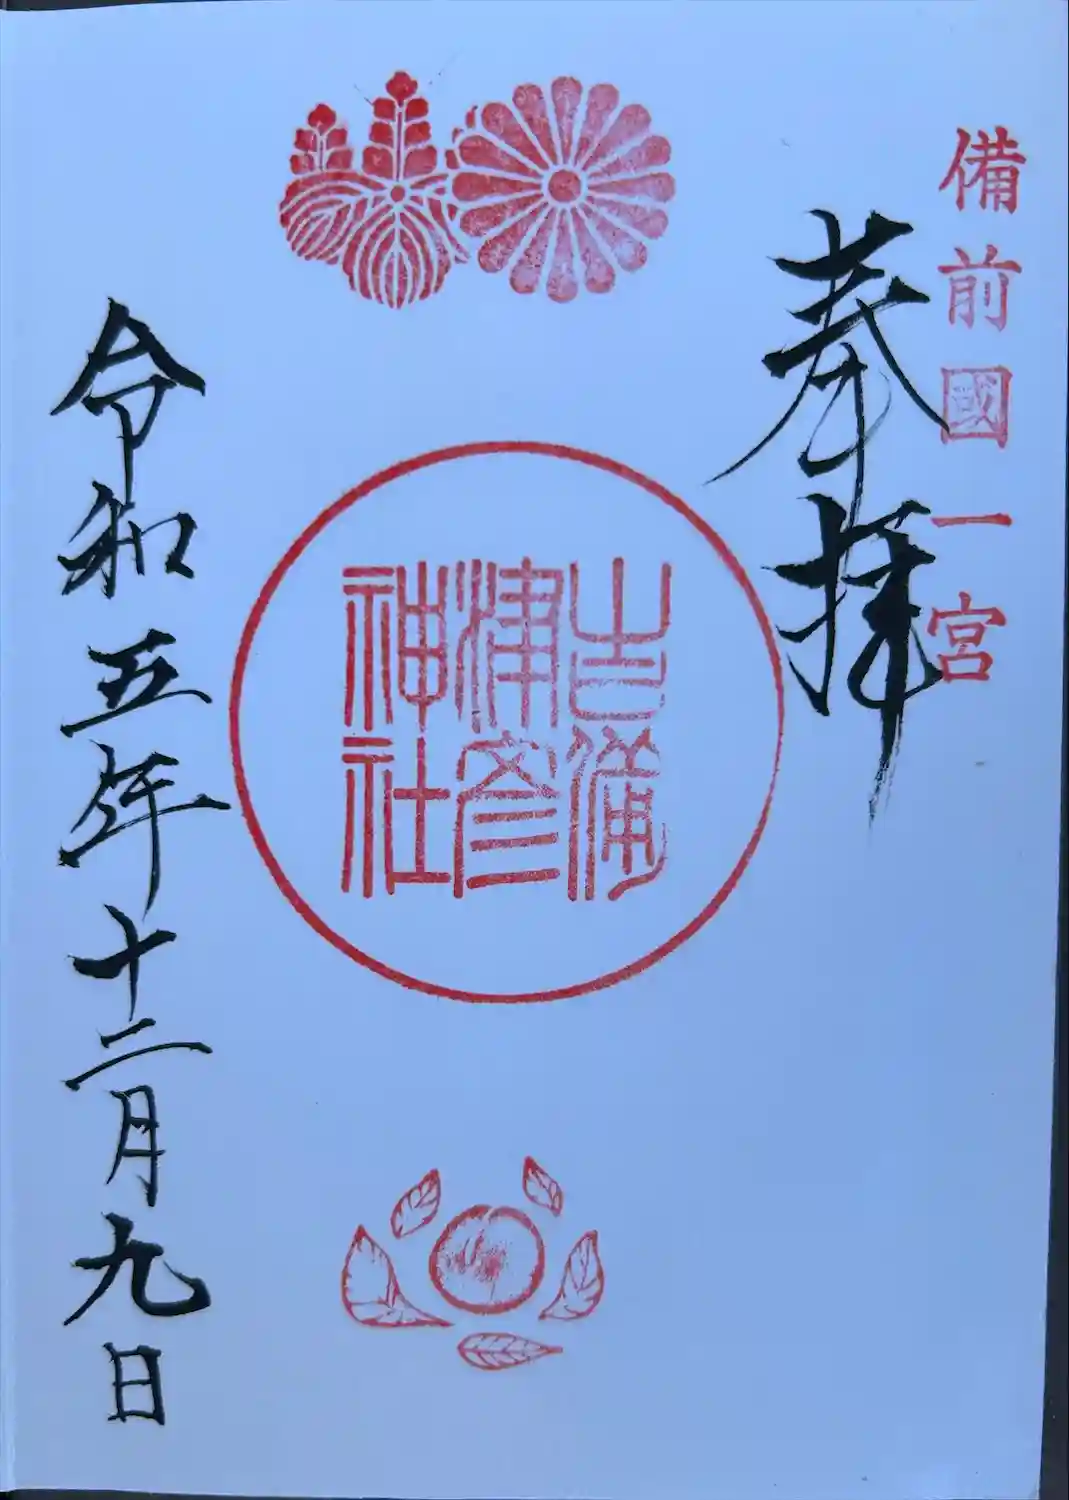 備前國一宮
奉拝
吉備
津彦
神社
令和五年十二月九日